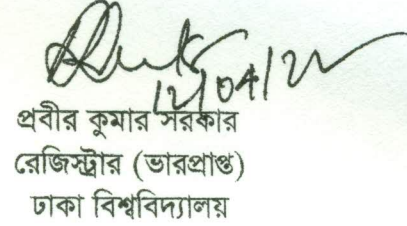 12/04/22
প্রবীর কুমার সরকার
রেজিস্ট্রার (ভারপ্রাপ্ত)
ঢাকা বিশ্ববিদ্যালয়